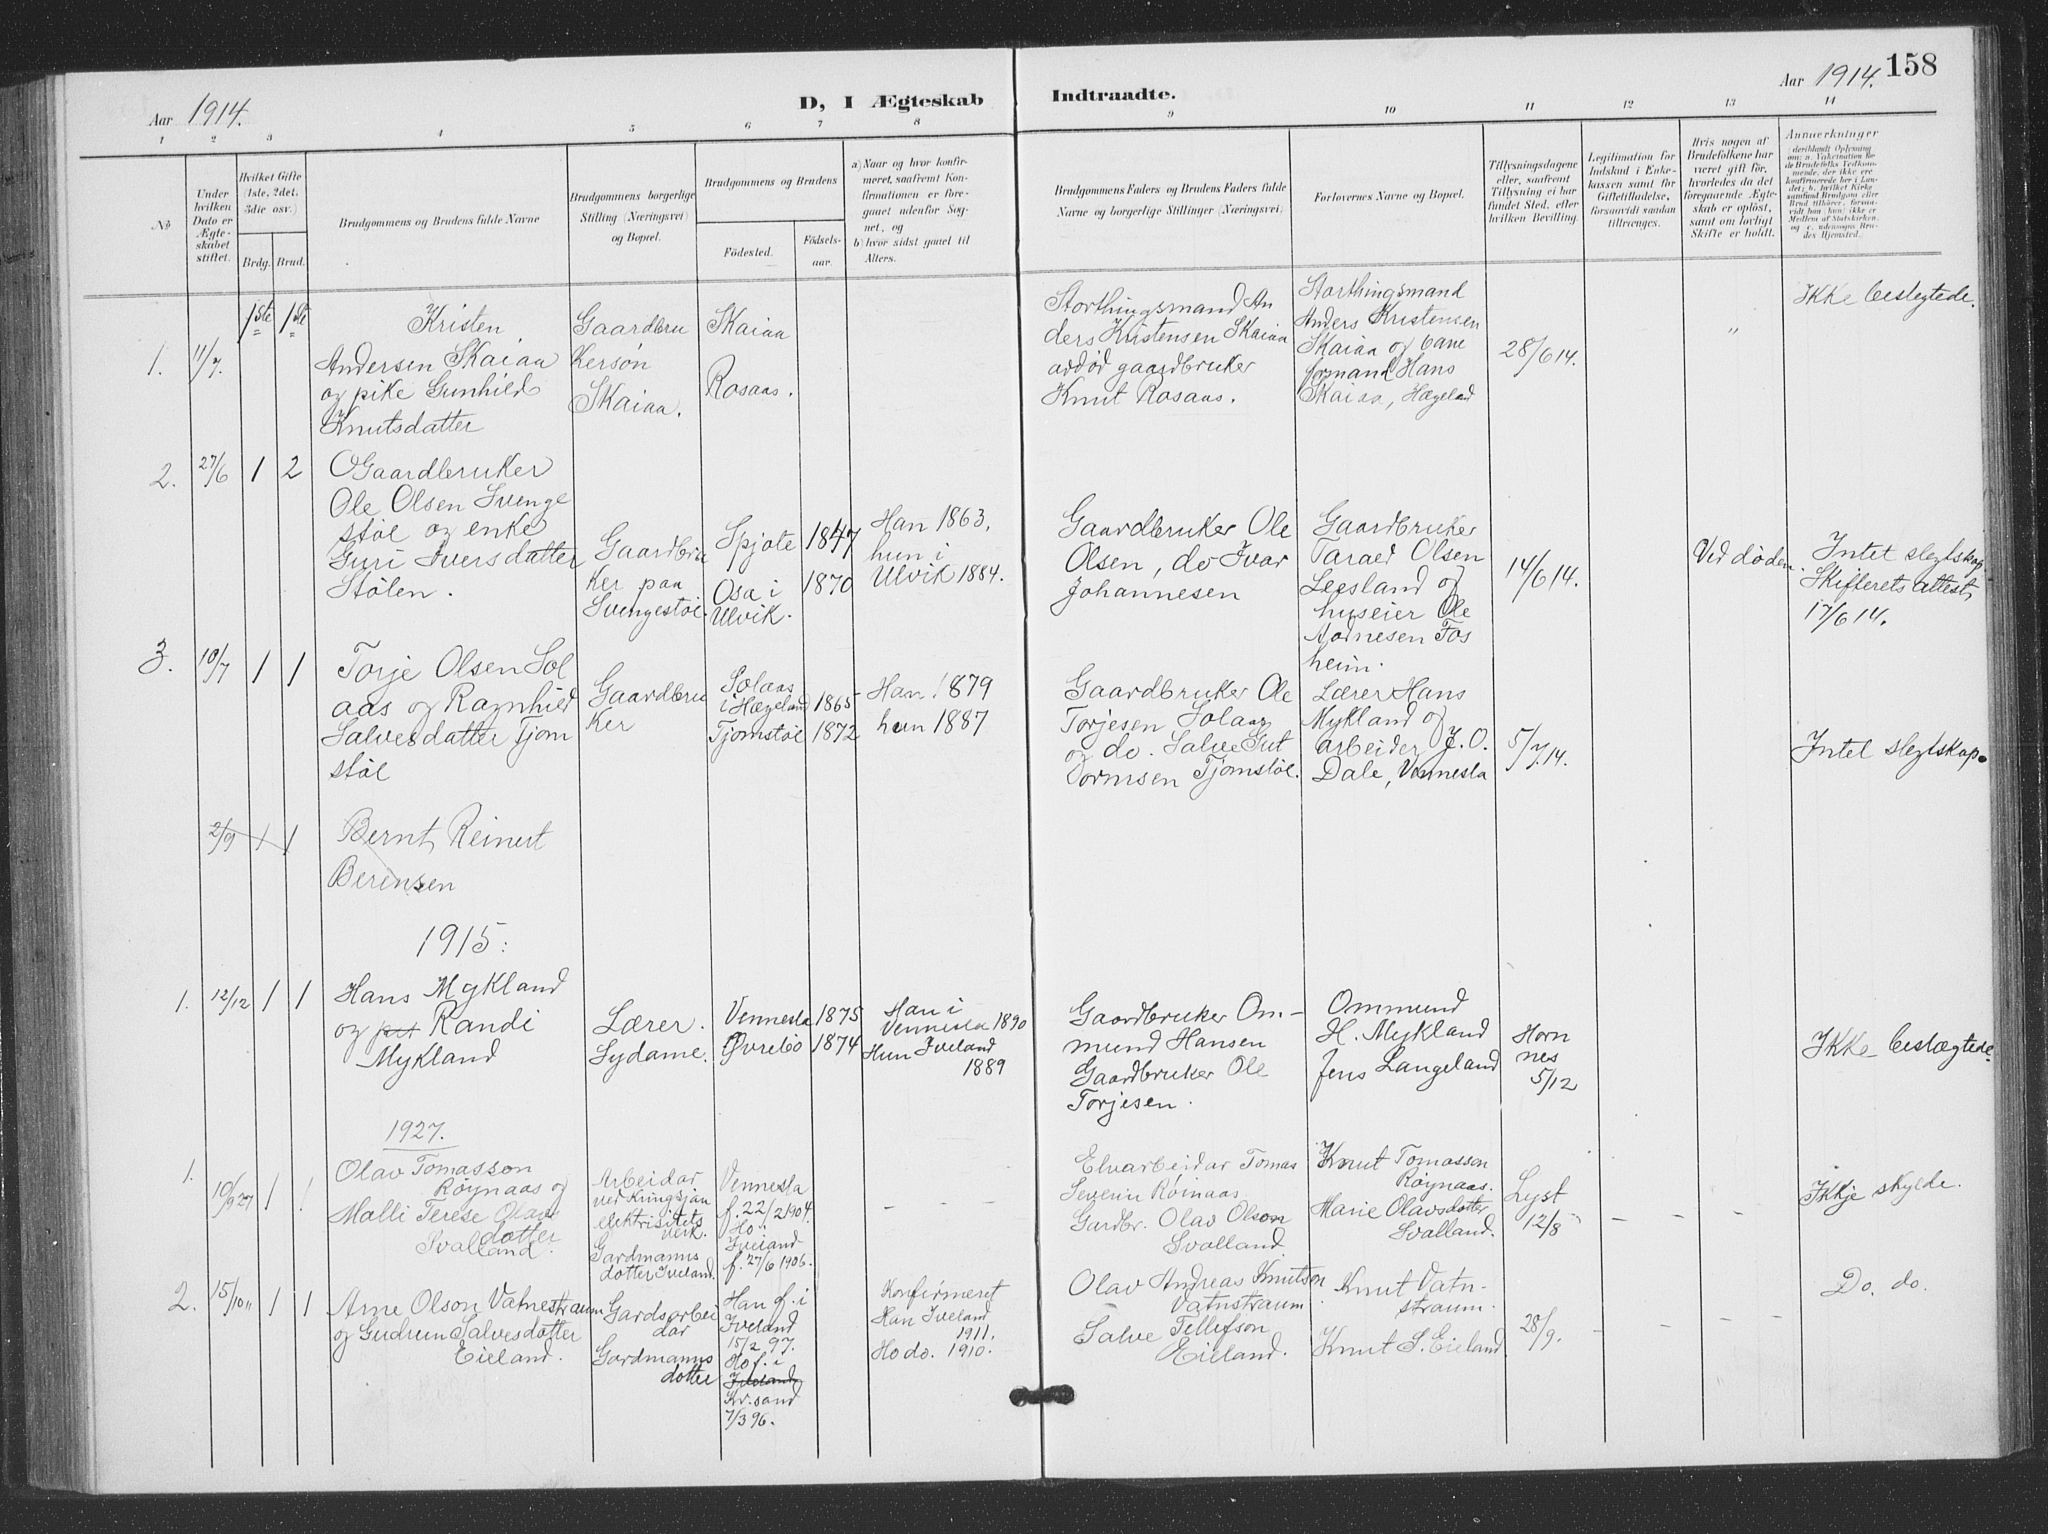 158
Aar 1914.
D, I Ægteskab
Indtraadte.
Aar 1914.
1 2 3 4 5 6 7 8 9 10 11 12 13 14
No
Under hvilken Dato er Ægteskabet stiftet.
Hvilket Gifte (1ste, 2det, 3die osv.)
Brdg. Brud.
Brudgommens og Brudens fulde Navne
Brudgommens borgerlige Stilling (Næringsvei) og Bopæl.
Brudgommens og Brudens
Fødested.
Fødsels-aar.
a) Naar og hvor konfirmeret, saafremt Konfirmationen er foregaaet udenfor Sognet, og
b) hvor sidst gaaet til Alters.
Brudgommens Faders og Brudens Faders fulde Navne og borgerlige Stillinger (Næringsvei)
Forlovernes Navne og Bopæl.
Tillysningsdagene eller, saafremt Tillysning ei har fundet Sted, efter hvilken Bevilling.
Legitimation for Indskud i Enkekassen samt for Giftetilladelse, forsaavidt saadan tiltrænges.
Hvis nogen af Brudefolkene har været gift før, hvorledes da det foregaaende Ægteskab er opløst, samt om lovligt Skifte er holdt.
Anmerkninger
1. 11/7. 1ste 1ste
Kristen
Andersen Skaiaa
og pike Gunhild
Knutsdatter
Gaardbru
kersøn
Skaiaa.
Skaiaa
Rosaas.
Storthingsmand An
ders Kristensen Skaiaa
avdød gaardbruker
Knut Rosaas.
Storthingsmand
Anders Kristensen
Skaiaa og
Hans
Skaiaa, Hægeland
28/6 14.
"
Ikke beslegtede.
2. 27/6 1 2
Gaardbruker
Ole Olsen Svenge
støl og enke
Guri Iversdatter
Stølen.
Gaardbru
ker paa
Svengestøl.
Spjote 1847
Osa i 1870
Ulvik.
Han 1863,
hun i
Ulvik 1884.
Gaardbruker Ole
Olsen, do Ivar
Johannesen
Gaardbruker
Tarald Olsen
Leesland og
huseier Ole
Aadnesen Fos
heim.
14/6 14.
Ved døden.
Intet slegtskap.
Skifterets attest
17/6 14.
3. 10/7 1 1
Torje Olsen Sol
aas og Ragnhild
Salvesdatter Tjom
støl
Gaardbru
ker
Solaas
i Hægeland 1865
Tjomstøl 1872
Han 1879
hun 1887
Gaardbruker Ole
Torjesen Solaas
og do. Salve Gut
tormsen Tjomstøl.
Lærer Hans
Mykland og
arbeider J. O.
Dale, Vennesla
5/7 14.
Intet slegtskap.
2/9 1 1
Bernt Reinert
Berensen
1915:
1. 12/12 1 1
Hans Mykland
og Randi
Mykland
Lærer.
Sydame.
Vennesla 1875
Øvrebø 1874
Han i
Vennesla 1890
Hun Iveland
1889
Gaardbruker Om-
mund Hansen
Gaardbruker Ole
Torjesen.
Ommund
H. Mykland
Jens Langeland
Horn
nes
5/12
Ikke beslægtede.
1927.
1. 10/9 27 1 1
Olav Tomasson
Røynaas og
Malli Terese Olavs
dotter
Svalland.
Arbeidar
ved Kringsjaa
elektrisitets
verk.
Gardmanns
dotter Iveland.
Vennesla
f. 22/2 1904.
Ho
Iveland
f. 27/6 1906.
– –
Elvarbeidar Tomas
Severin Røinaas
Gardbr. Olav Olson
Svalland.
Knut Tomasson
Røynaas.
Marie Olavsdotter
Svalland.
Lyst
12/8
– – –
Ikkje skylde.
2. 15/10 " 1 1
Arne Olson Vatnestraum
og Gudrun Salvesdotter
Eieland.
Gardsarbei
dar
Gardmanns
dotter
Han f. i
Iveland
15/2 97.
Ho f. i
Iveland
Kr.sand
7/3 96.
Konfirmeret
Han Iveland
1911.
Ho do. 1910.
Olav Andreas Knutson
Vatnstraum
Salve Tellefson
Eieland.
Knut Vatn-
straum.
Knut S. Eieland
28/9.
– – – –
Do. do.